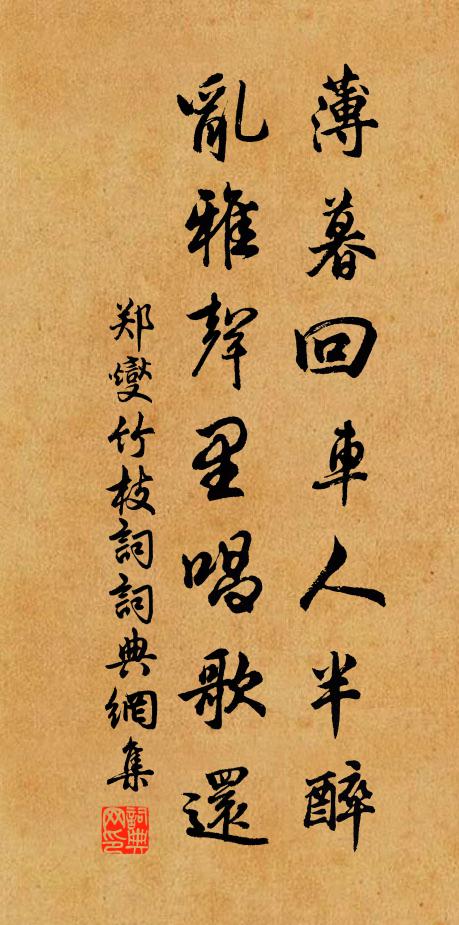 薄暮回車人半醉
亂雅聲里唱歌還
郑燮竹枝詞詞典網集
詞典网印